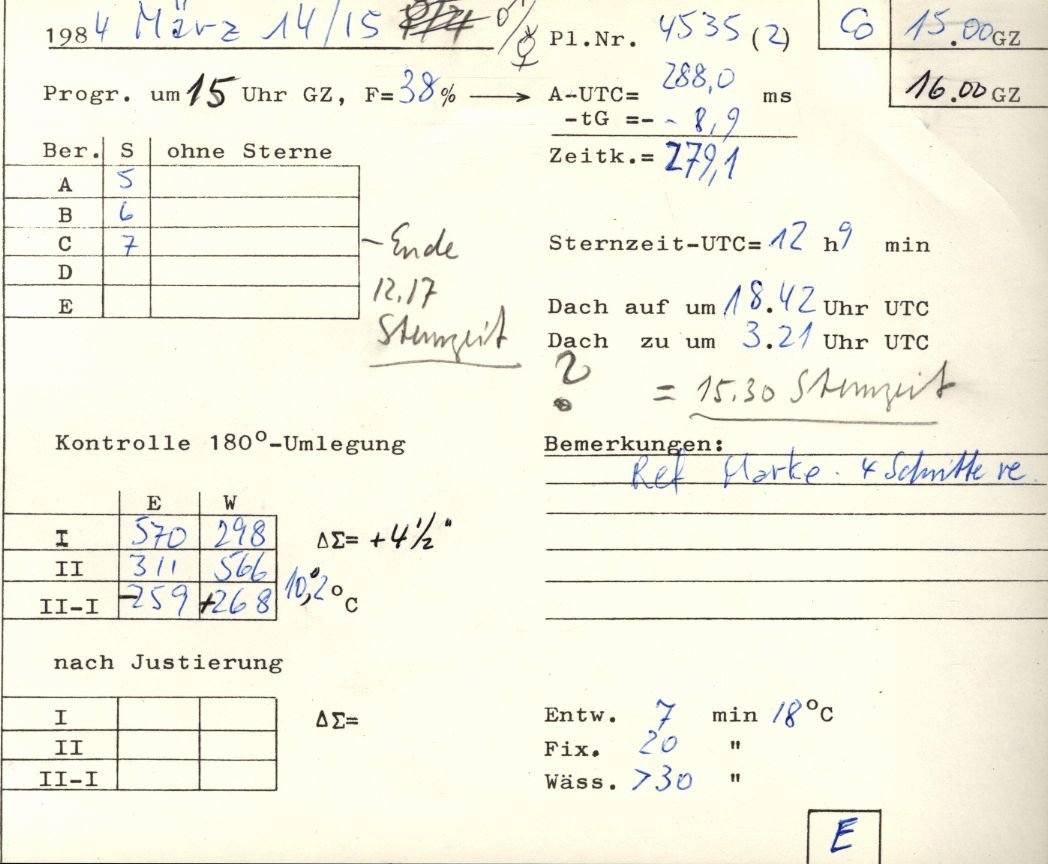 1984 März 14/15 ♂/☿ Pl.Nr. 4535 (2) Co 15.00 GZ
Progr. um 15 Uhr GZ, F=38% → A-UTC= 288,0 ms 16.00 GZ
-tG =- - 8,9
Zeitk.= 279,1
Ber. S ohne Sterne
A 5
B 6
C 7
D
E
- Ende
12.17
Sternzeit
Sternzeit-UTC= 12 h 9 min
Dach auf um 18.42 Uhr UTC
Dach zu um 3.21 Uhr UTC
? = 15.30 Sternzeit
Kontrolle 180°-Umlegung
E W
I 570 298 ΔΣ= +4 1/2"
II 311 566
II-I -259 +268 10,2 °C
Bemerkungen:
Ref Marke. 4 Schnitte re
nach Justierung
I ΔΣ=
II
II-I
Entw. 7 min 18 °C
Fix. 20 "
Wäss. >30 "
E